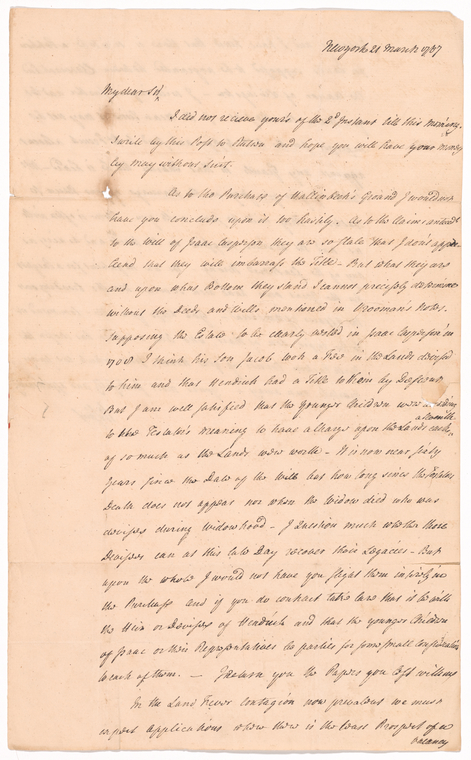 Newyork 21 March 1767
My dear Sir
I did not receive yours of the 2d Instant till this Morning.
I write by this Post to and hope you will have your money
by May without suit.
As to the Purchase of Hallenbeck's Ground I would not
have you conclude upon it too hastily. As to the Claims under
to the Will of Isaac Casperson they are so stale that I dont appre-
hend that they will embarrass the Title - But what they are
and upon what Bottom they stand I cannot precisely determine
without the Deeds and Wills mentioned in Vrooman's Notes.
Supposing the Estate to be clearly vested in Isaac Casperson in
1708 I think his Son Jacob took a Fee in the Lands devised
to him and that Hendrick had a Title to them by Descent
But I am well satisfied that the Younger Children were according
to the Testator's meaning to have a Charge upon the Lands each a seventh
of so much as the Lands were worth - It is now near sixty
Years since the Date of the Will but how long since the Testators
Death does not appear nor when the Widow died who was
devisee during Widowhood - I question much whether these
Devisees can at this late Day recover their Legacies - But
upon the whole I would not have you slight them intirely in
the Purchase and if you do contract take Care that it be with
the Heir or Devisees of Hendrick and that the younger Children
of Isaac or their Representatives be parties for some small consideration
to each of them. — I return you the Papers you left with me
In the Land Fever contagion now prevalent we must
expect Applications where there is the least Prospect of a
vacancy